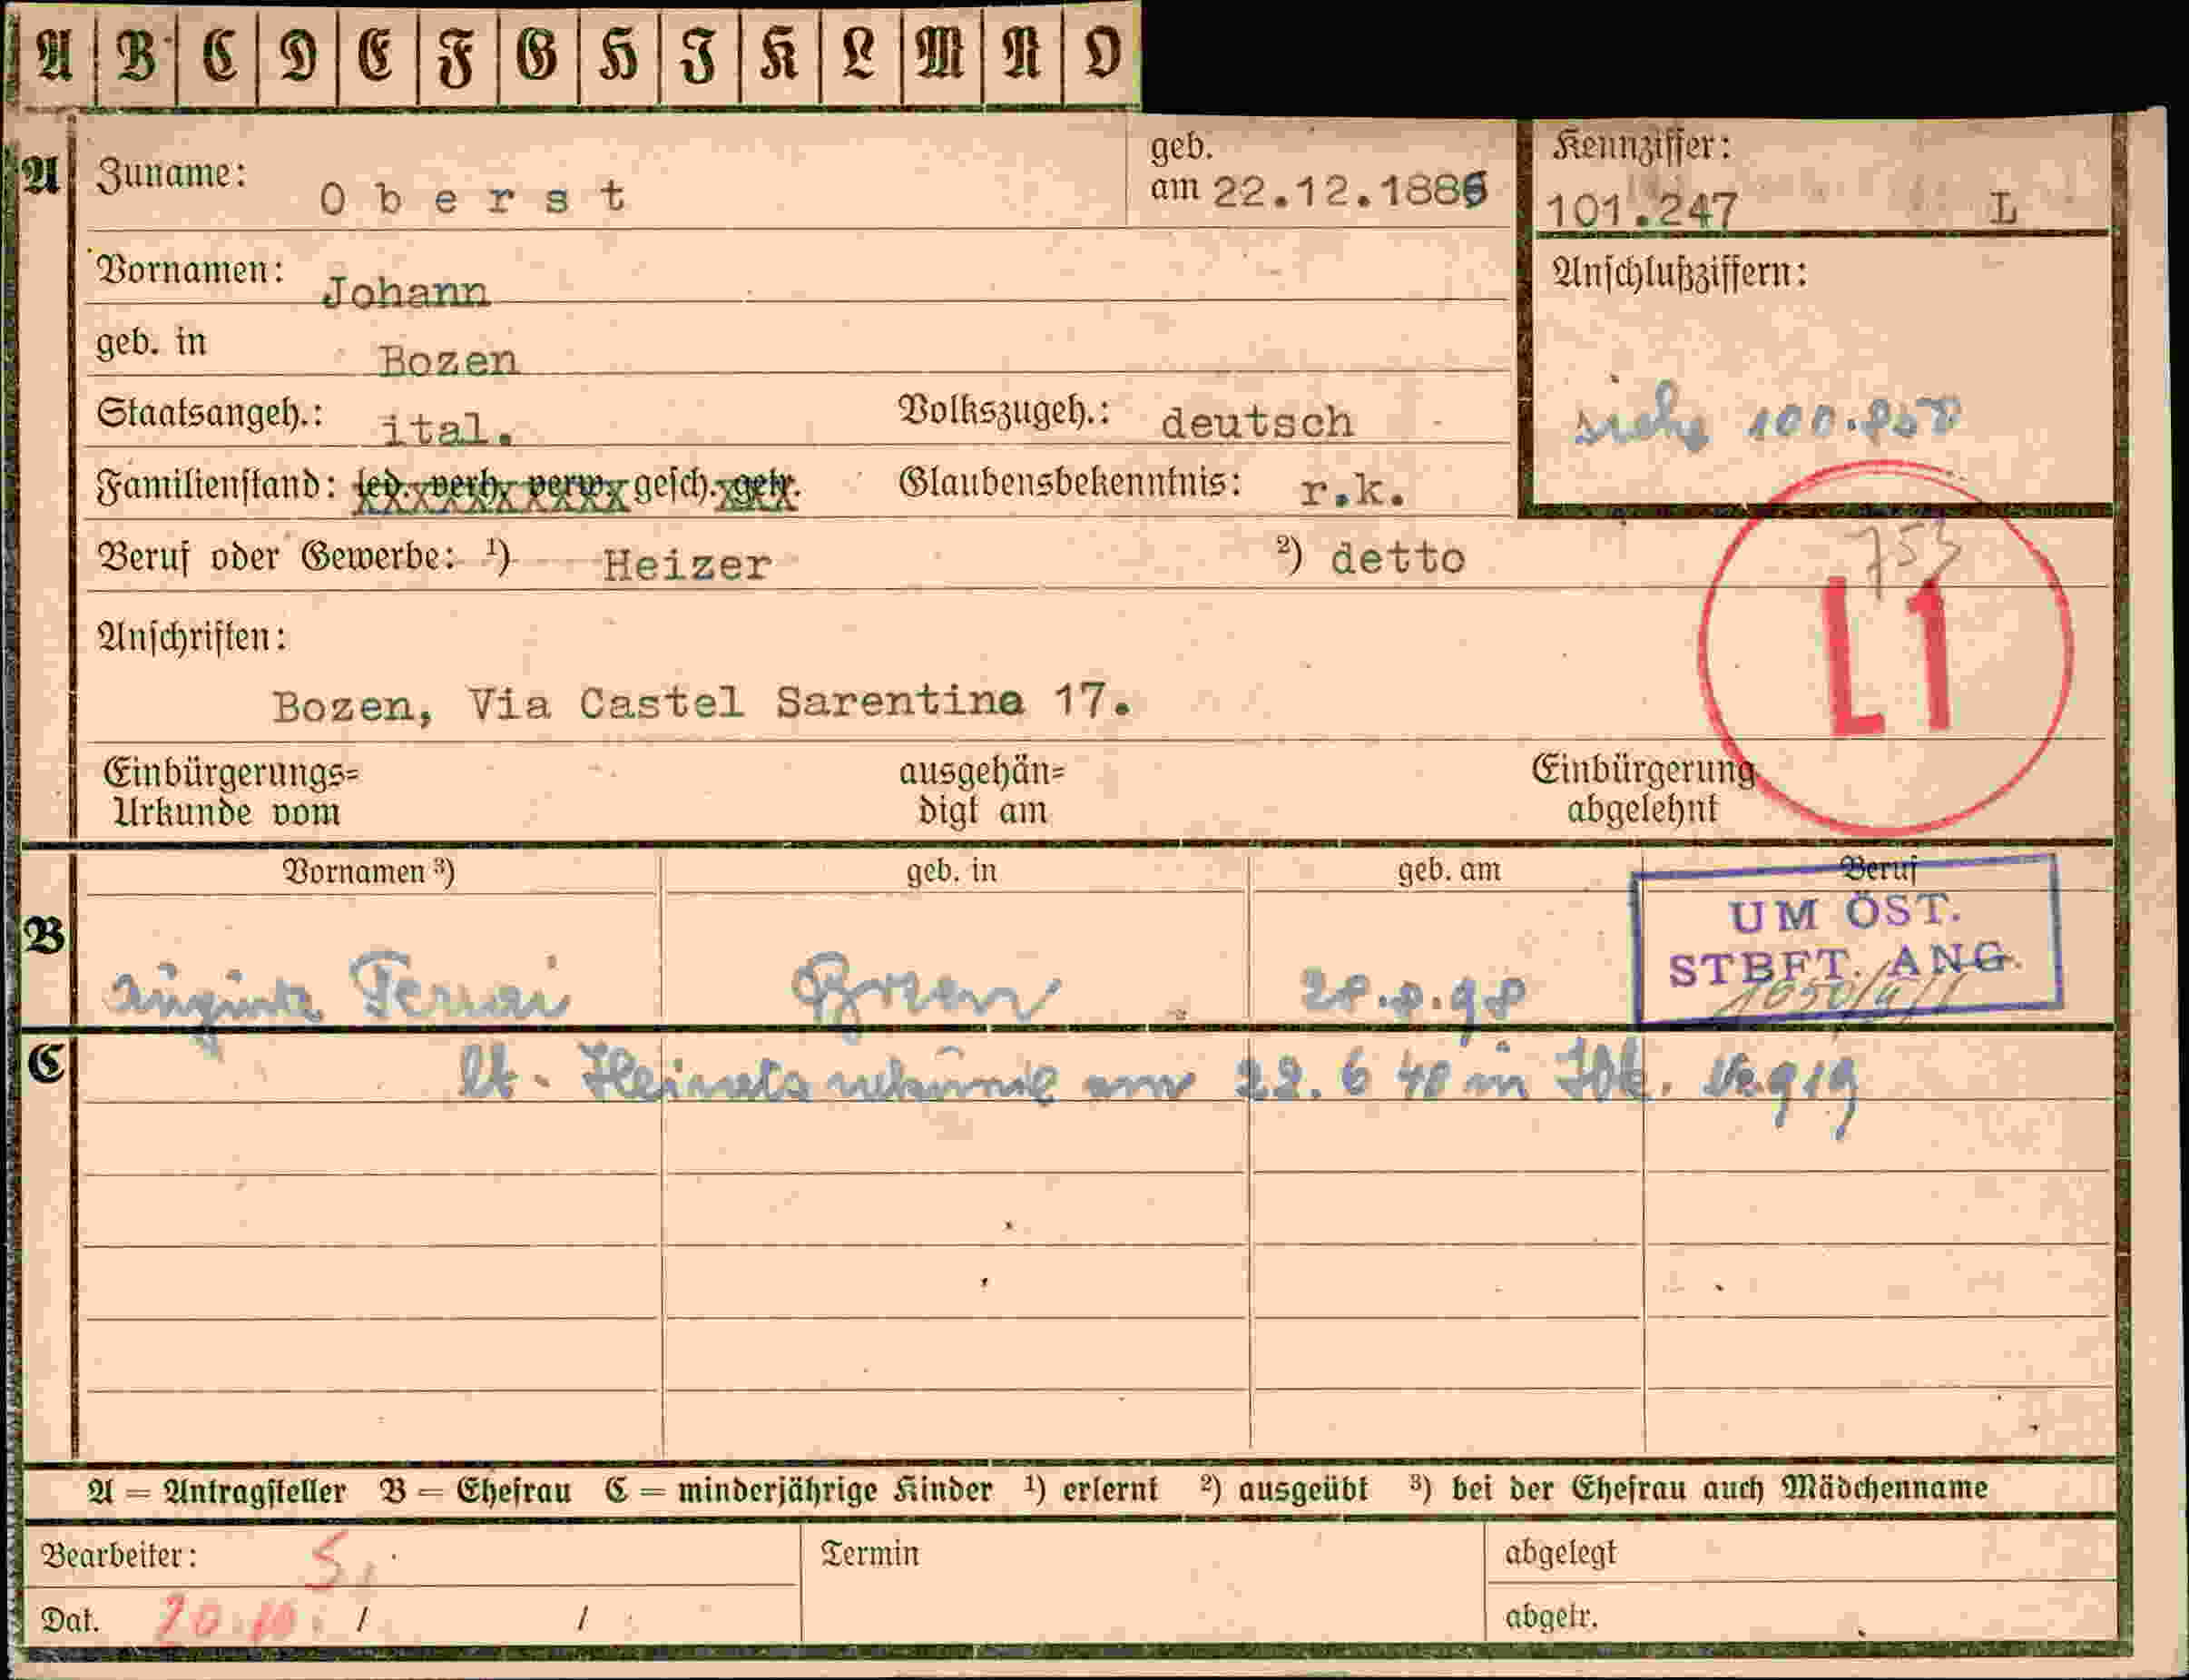 A B C D E F G H I K L M N O
A Zuname: Oberst geb. am 22.12.1886 Kennziffer: 101.247 L
Vornamen: Johann Anschlußziffern:
geb. in Bozen
Staatsangeh.: ital. Volkszugeh.: deutsch siehe
Familienstand: led. verh. verw. gesch. getr. Glaubensbekenntnis: r.k.
Beruf oder Gewerbe: ¹) Heizer ²) detto 753
L1
Anschriften:
Bozen, Via Castel Sarentina 17.
Einbürgerungs= ausgehän= Einbürgerung
Urkunde vom digt am abgelehnt
Vornamen ³) geb. in geb. am Beruf
UM ÖST.
STBFT. ANG.
B Bozen 28.8.98
C lt. am 22.6 40 in
A = Antragsteller B = Ehefrau C = minderjährige Kinder ¹) erlernt ²) ausgeübt ³) bei der Ehefrau auch Mädchenname
Bearbeiter: S. Termin abgelegt
Dat. 20.10. / / abgetr.